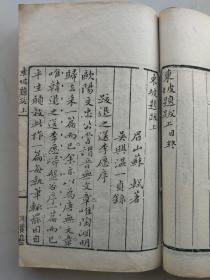 東坡題跋上目錄
東坡題跋上
眉山蘇軾著
吳興溫一貞錄
跋退之送李愿序
歐陽文忠公嘗謂晉無文章惟陶淵明
歸去來一篇而已余亦以為唐無文章
唯韓退之送李愿歸盤谷序一篇而已
平生願效此作一篇每執筆輒罷因自
東坡題跋上